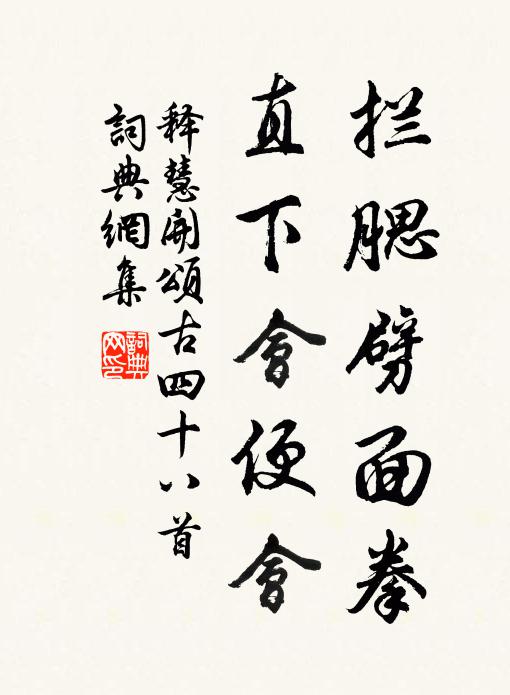 拦腮劈面拳
直下會便會
释慧開頌古四十八首
詞典網集
詞典網印